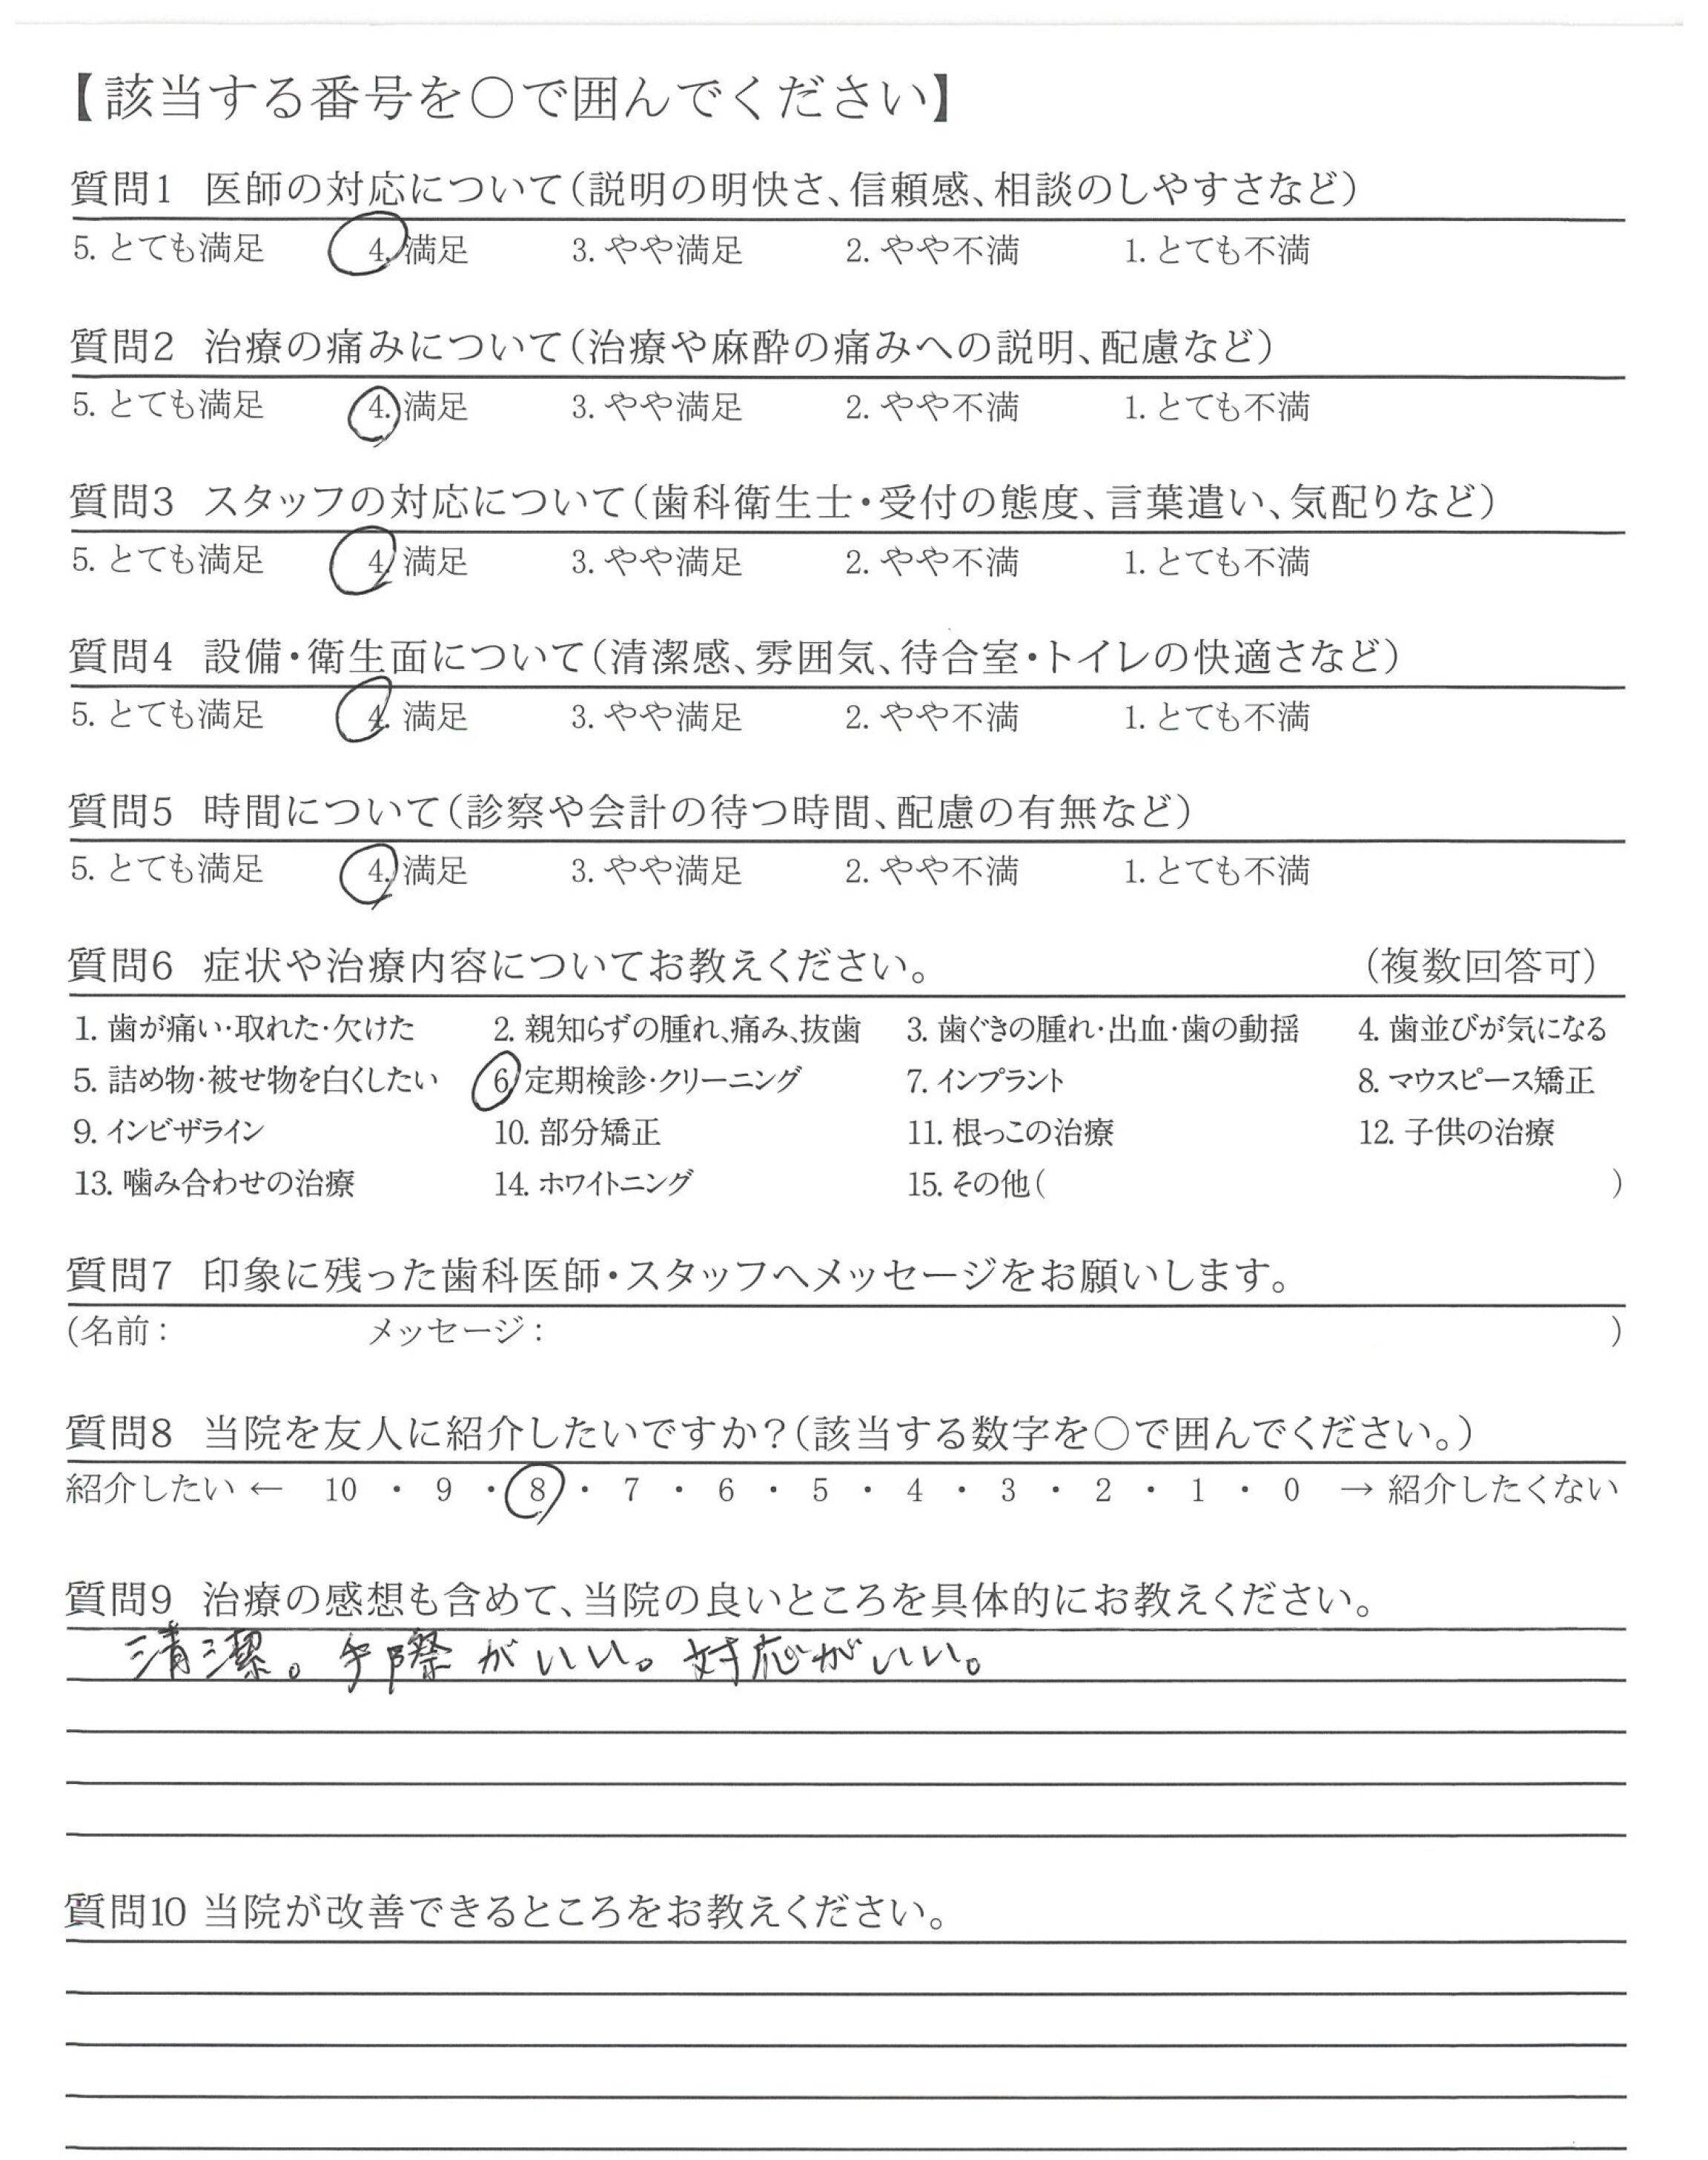 【該当する番号を○で囲んでください】
質問1 医師の対応について(説明の明快さ、信頼感、相談のしやすさなど)
5. とても満足 4. 満足 3. やや満足 2. やや不満 1. とても不満
質問2 治療の痛みについて(治療や麻酔の痛みへの説明、配慮など)
5. とても満足 4. 満足 3. やや満足 2. やや不満 1. とても不満
質問3 スタッフの対応について(歯科衛生士・受付の態度、言葉遣い、気配りなど)
5. とても満足 4. 満足 3. やや満足 2. やや不満 1. とても不満
質問4 設備・衛生面について(清潔感、雰囲気、待合室・トイレの快適さなど)
5. とても満足 4. 満足 3. やや満足 2. やや不満 1. とても不満
質問5 時間について(診察や会計の待つ時間、配慮の有無など)
5. とても満足 4. 満足 3. やや満足 2. やや不満 1. とても不満
質問6 症状や治療内容についてお教えください。 (複数回答可)
1. 歯が痛い・取れた・欠けた 2. 親知らずの腫れ、痛み、抜歯 3. 歯ぐきの腫れ・出血・歯の動揺 4. 歯並びが気になる
5. 詰め物・被せ物を白くしたい 6. 定期検診・クリーニング 7. インプラント 8. マウスピース矯正
9. インビザライン 10. 部分矯正 11. 根っこの治療 12. 子供の治療
13. 噛み合わせの治療 14. ホワイトニング 15. その他( )
質問7 印象に残った歯科医師・スタッフへメッセージをお願いします。
(名前: メッセージ: )
質問8 当院を友人に紹介したいですか?(該当する数字を○で囲んでください。)
紹介したい ← 10 ・ 9 ・ 8 ・ 7 ・ 6 ・ 5 ・ 4 ・ 3 ・ 2 ・ 1 ・ 0 → 紹介したくない
質問9 治療の感想も含めて、当院の良いところを具体的にお教えください。
清潔。手際がいい。対応がいい。
質問10 当院が改善できるところをお教えください。